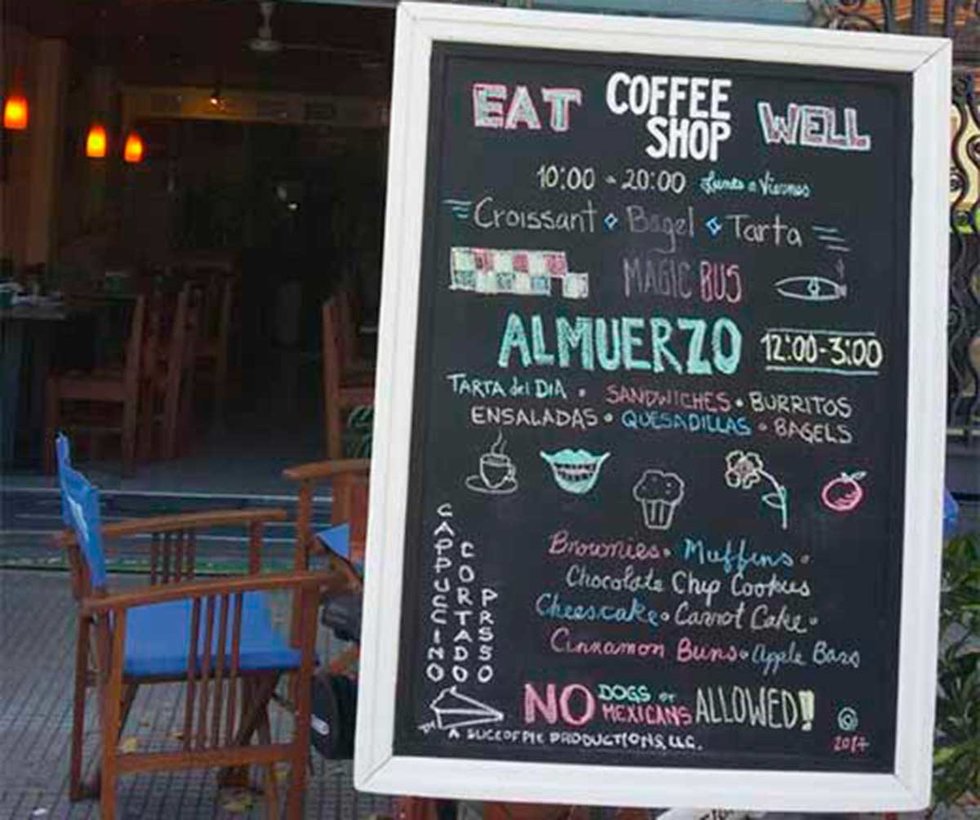 EAT COFFEE SHOP WELL
10:00 - 20:00 Lunes a Viernes
Croissant Bagel Tarta
MAGIC BUS
ALMUERZO 12:00-3:00
TARTA del DIA • SANDWICHES • BURRITOS
ENSALADAS • QUESADILLAS • BAGELS
CAPPUCCINO
CORTADO
PRSSO
Brownies • Muffins •
Chocolate Chip Cookies
Cheescake • Carrot Cake •
Cinnamon Buns • Apple Bars
NO DOGS or MEXICANS ALLOWED!
A SLICEOFPIE PRODUCTIONS, LLC.
2017